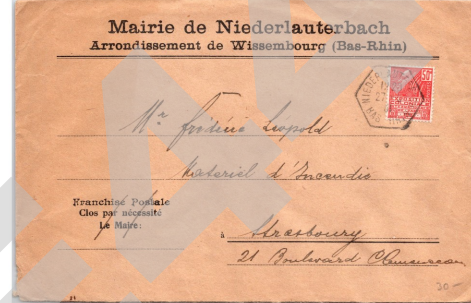 Mairie de Niederlauterbach
Arrondissement de Wissembourg (Bas-Rhin)
50c
Mr Frédéric Léopold
Matériel d'Incendie
Franchise Postale
Clos par nécessité
Le Maire:
à Strasbourg
21 Boulevard Clemenceau
20-